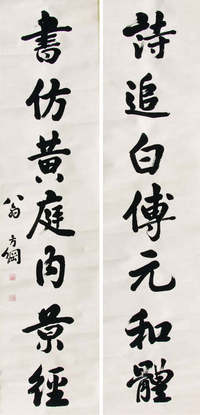 詩追白傅元和體
書仿黄庭内景經
翁方綱